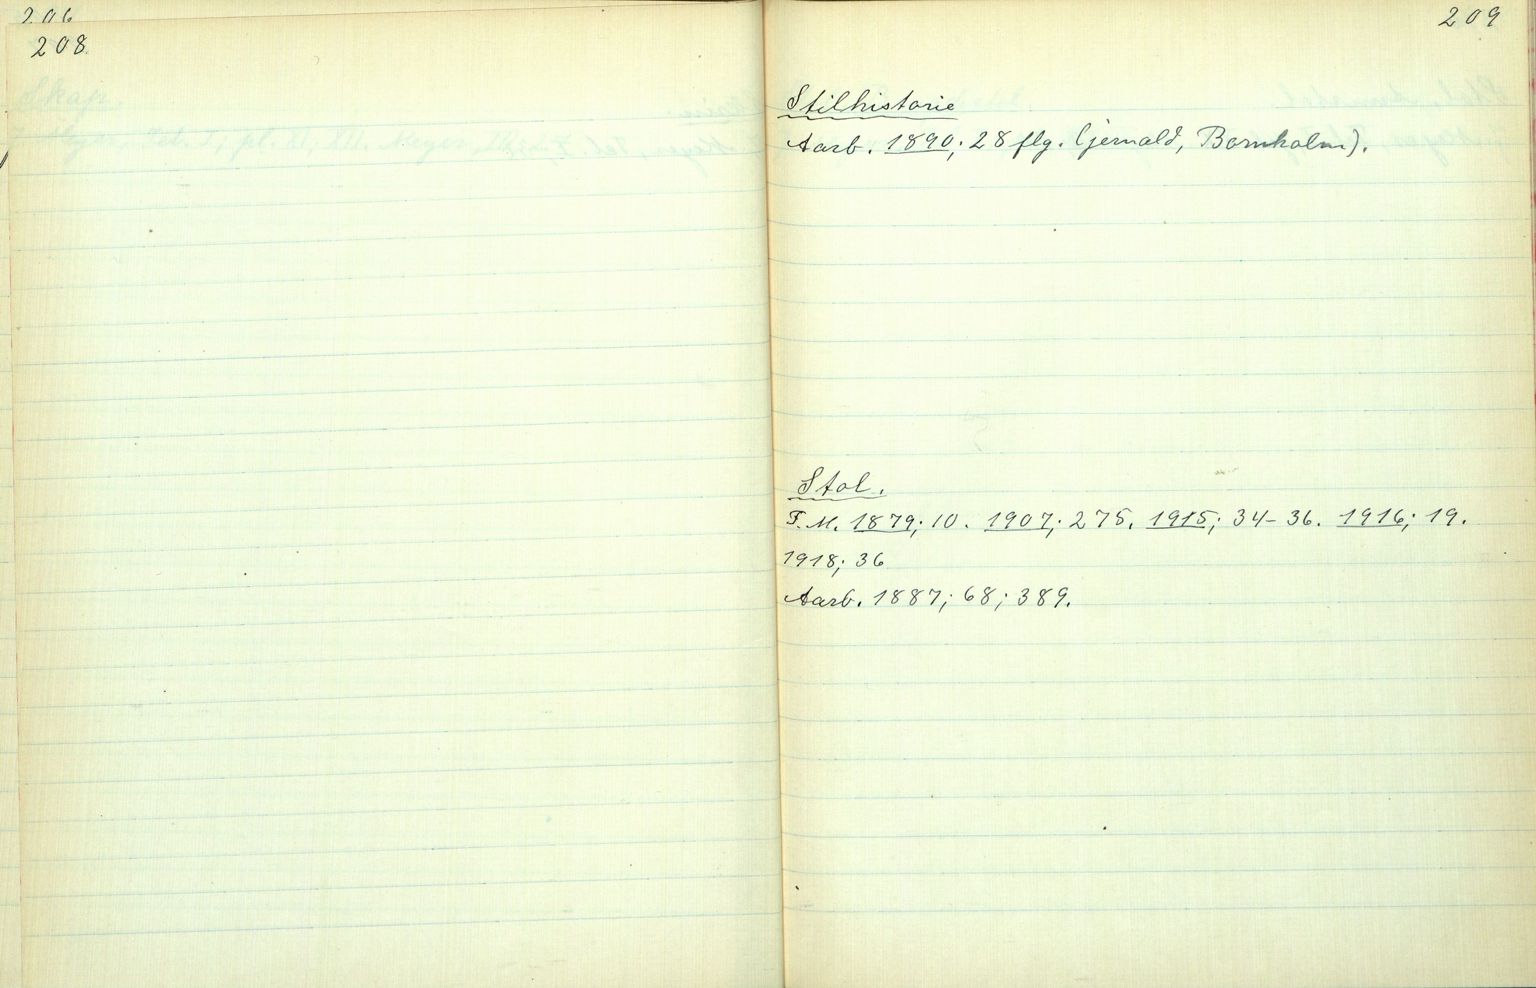 206
208
209
Stilhistorie
Aarb. 1890; 28 flg. (jernald, Bornholm).
Stol.
F. M. 1879; 10. 1907; 275. 1915; 34-36. 1916; 19.
1918; 36
Aarb. 1887; 68; 389.